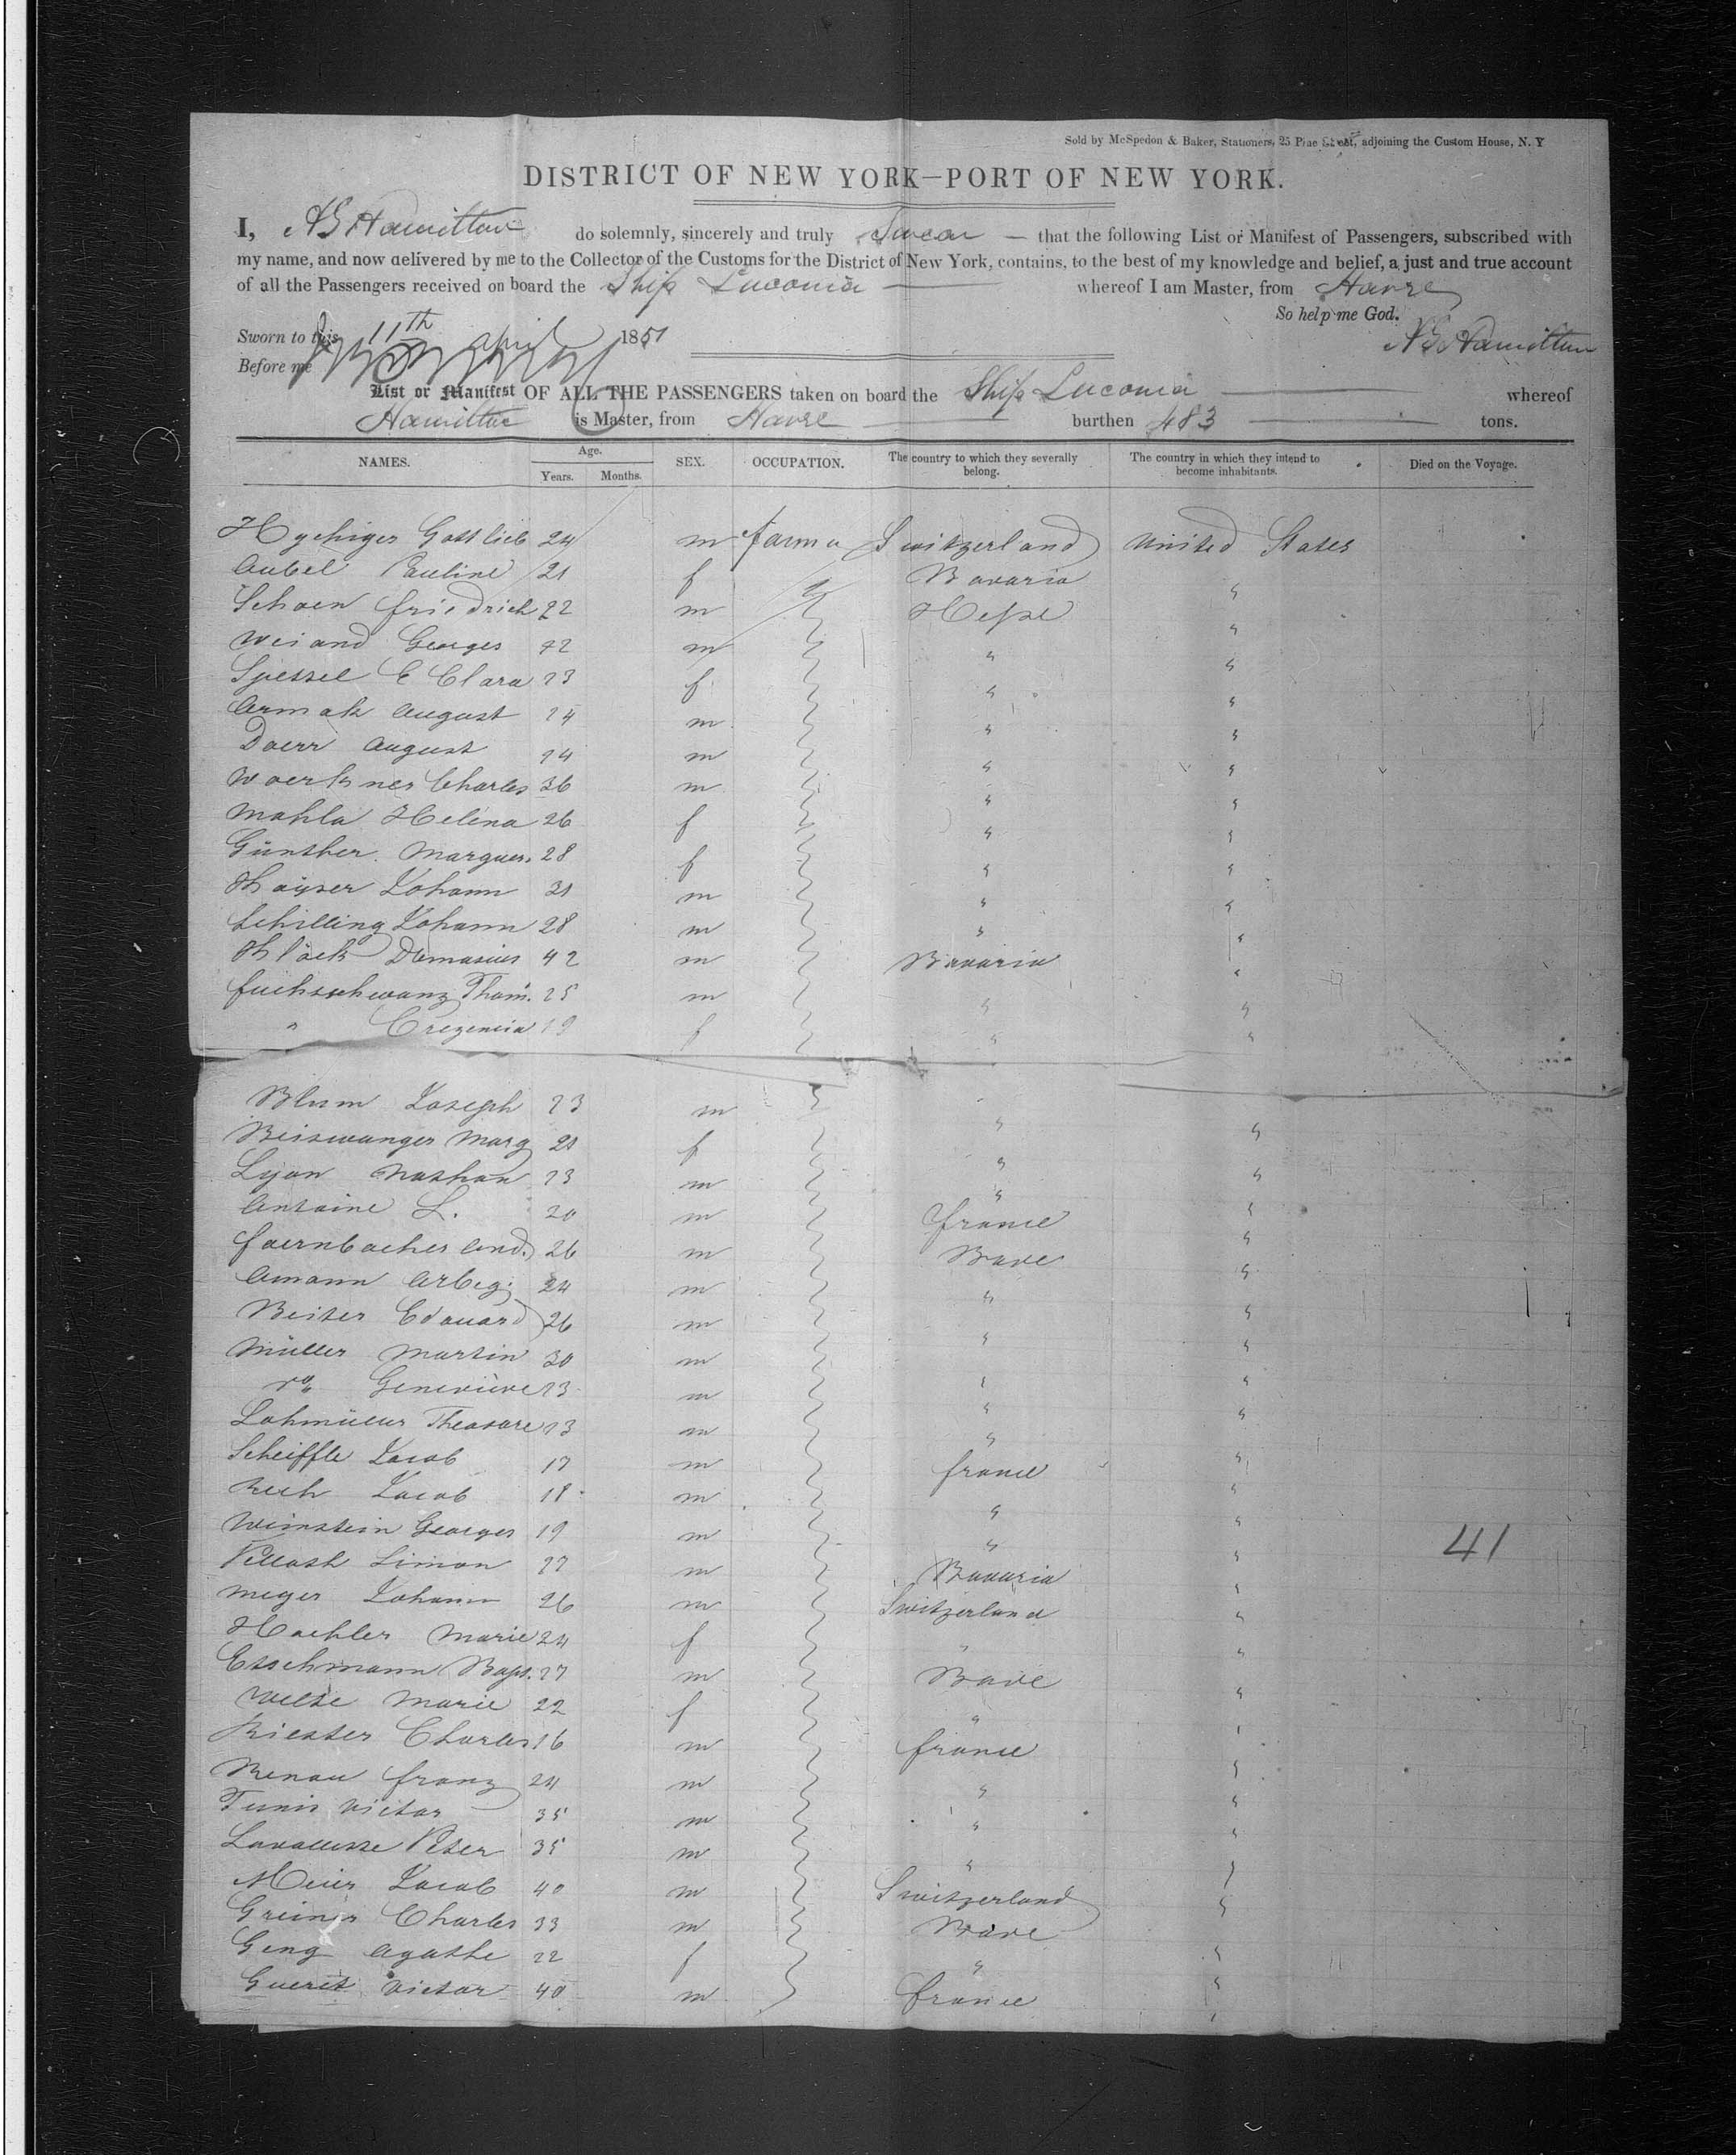 Sold by McSpedon & Baker, Stationers, 25 Pine Street, adjoining the Custom House, N. Y
DISTRICT OF NEW YORK—PORT OF NEW YORK.
I, AB Hamilton do solemnly, sincerely and truly Swear — that the following List or Manifest of Passengers, subscribed with
my name, and now delivered by me to the Collector of the Customs for the District of New York, contains, to the best of my knowledge and belief, a just and true account
of all the Passengers received on board the Ship Luconia — whereof I am Master, from Havre
So help me God.
Sworn to this 11th April 1851
AB Hamilton
Before me
List or Manifest OF ALL THE PASSENGERS taken on board the Ship Luconia — whereof
Hamilton is Master, from Havre — burthen 483 — tons.
NAMES. Age. Years. Months. SEX. OCCUPATION. The country to which they severally belong. The country in which they intend to become inhabitants. Died on the Voyage.
Gottlieb 24 m farmer Switzerland United States
Aubel Pauline 21 f " Bavaria "
Schoen friedrich 22 m " Hesse "
Weiand Georges 22 m " " "
Spessel E Clara 23 f " " "
Armak August 24 m " " "
Doerr August 24 m " " "
Woerkner Charles 36 m " " "
Mahla Helena 26 f " " "
Günther Marguer. 28 f " " "
Johann 31 m " " "
Schilling Johann 28 m " " "
Damasius 42 m " Bavaria "
fuchsschwanz Thom. 25 m " " "
" Crezencia 19 f " " "
Blum Joseph 23 m " " "
Beiswanger Marg 21 f " " "
Lyon Nathan 23 m " " "
Antoine L. 20 m " france "
faernbacher And. 26 m " Bave "
Amann Arbog. 24 m " " "
Beiter Edouard 26 m " " "
Müller Martin 30 m " " "
Geneviève 23 m " " "
Lohmüller Theodore 23 m " " "
Scheiffle Jacob 17 m " france "
Ruch Jacob 18 m " " "
Weinstein Georges 19 m " " "
Simon 27 m " Bavaria "
41
Meyer Johann 26 m " Switzerland "
Haehler Marie 24 f " " "
Esschmann Bapt. 27 m " Bave "
Welte Marie 22 f " " "
Riester Charles 16 m " france "
Renau franz 24 m " " "
Tunis Victor 35 m " " "
Peter 35 m " " "
Meier Jacob 40 m " Switzerland "
Greiner Charles 33 m " Bave "
Geng Agathe 22 f " " "
Gueret Victor 40 m " france "